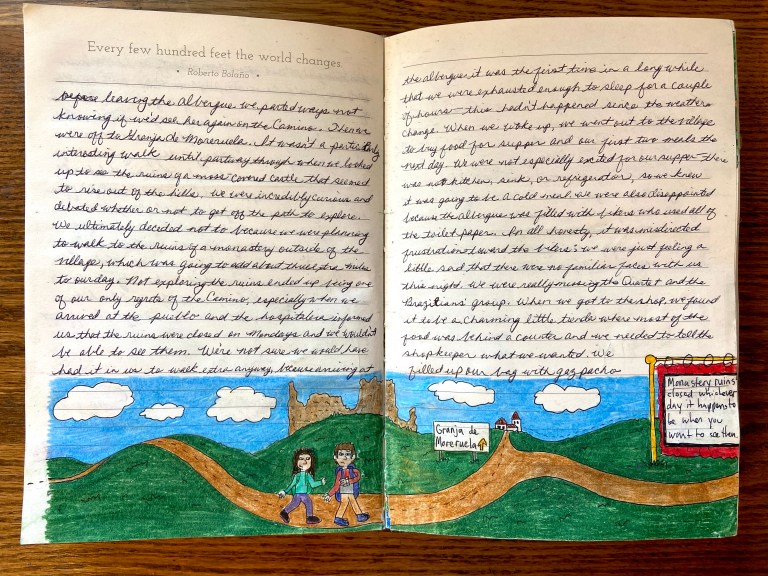 Every few hundred feet the world changes.
• Roberto Bolaño •
before leaving the albergue we parted ways not
knowing if we'd see her again on the Camino. Then we
were off to Granja de Moreruela. It wasn't a particularly
interesting walk until partway through when we looked
up to see the ruins of a moss covered castle that seemed
to rise out of the hills. We were incredibly curious and
debated whether or not to get off the path to explore.
We ultimately decided not to because we were planning
to walk to the ruins of a monastery outside of the
village, which was going to add about three miles
to our day. Not exploring the ruins ended up being one
of our only regrets of the Camino, especially when we
arrived at the pueblo and the hospitalera informed
us that the ruins were closed on Mondays and we wouldn't
be able to see them. We're not sure we would have
had it in us to walk extra anyway, because arriving at
the albergue it was the first time in a long while
that we were exhausted enough to sleep for a couple
of hours - this hadn't happened since the weather
change. When we woke up, we went out to the village
to buy food for supper and our first two meals the
next day. We were not especially excited for our supper there
was not kitchen, sink, or refrigerator, so we knew
it was going to be a cold meal. We were also disappointed
because the albergue was filled with bikers who used all of
the toilet paper. In all honesty, it was misdirected
frustration toward the bikers: we were just feeling a
little sad that there were no familiar faces with us
this night. We were really missing the Quartet and the
Brazilians group. When we got to the shop, we found
it to be a charming little tienda where most of the
food was behind a counter and we needed to tell the
shopkeeper what we wanted. We
filled up our bag with gazpacho
Granja de
Moreruela
Monastery ruins
closed whichever
day it happens to
be when you
want to see them